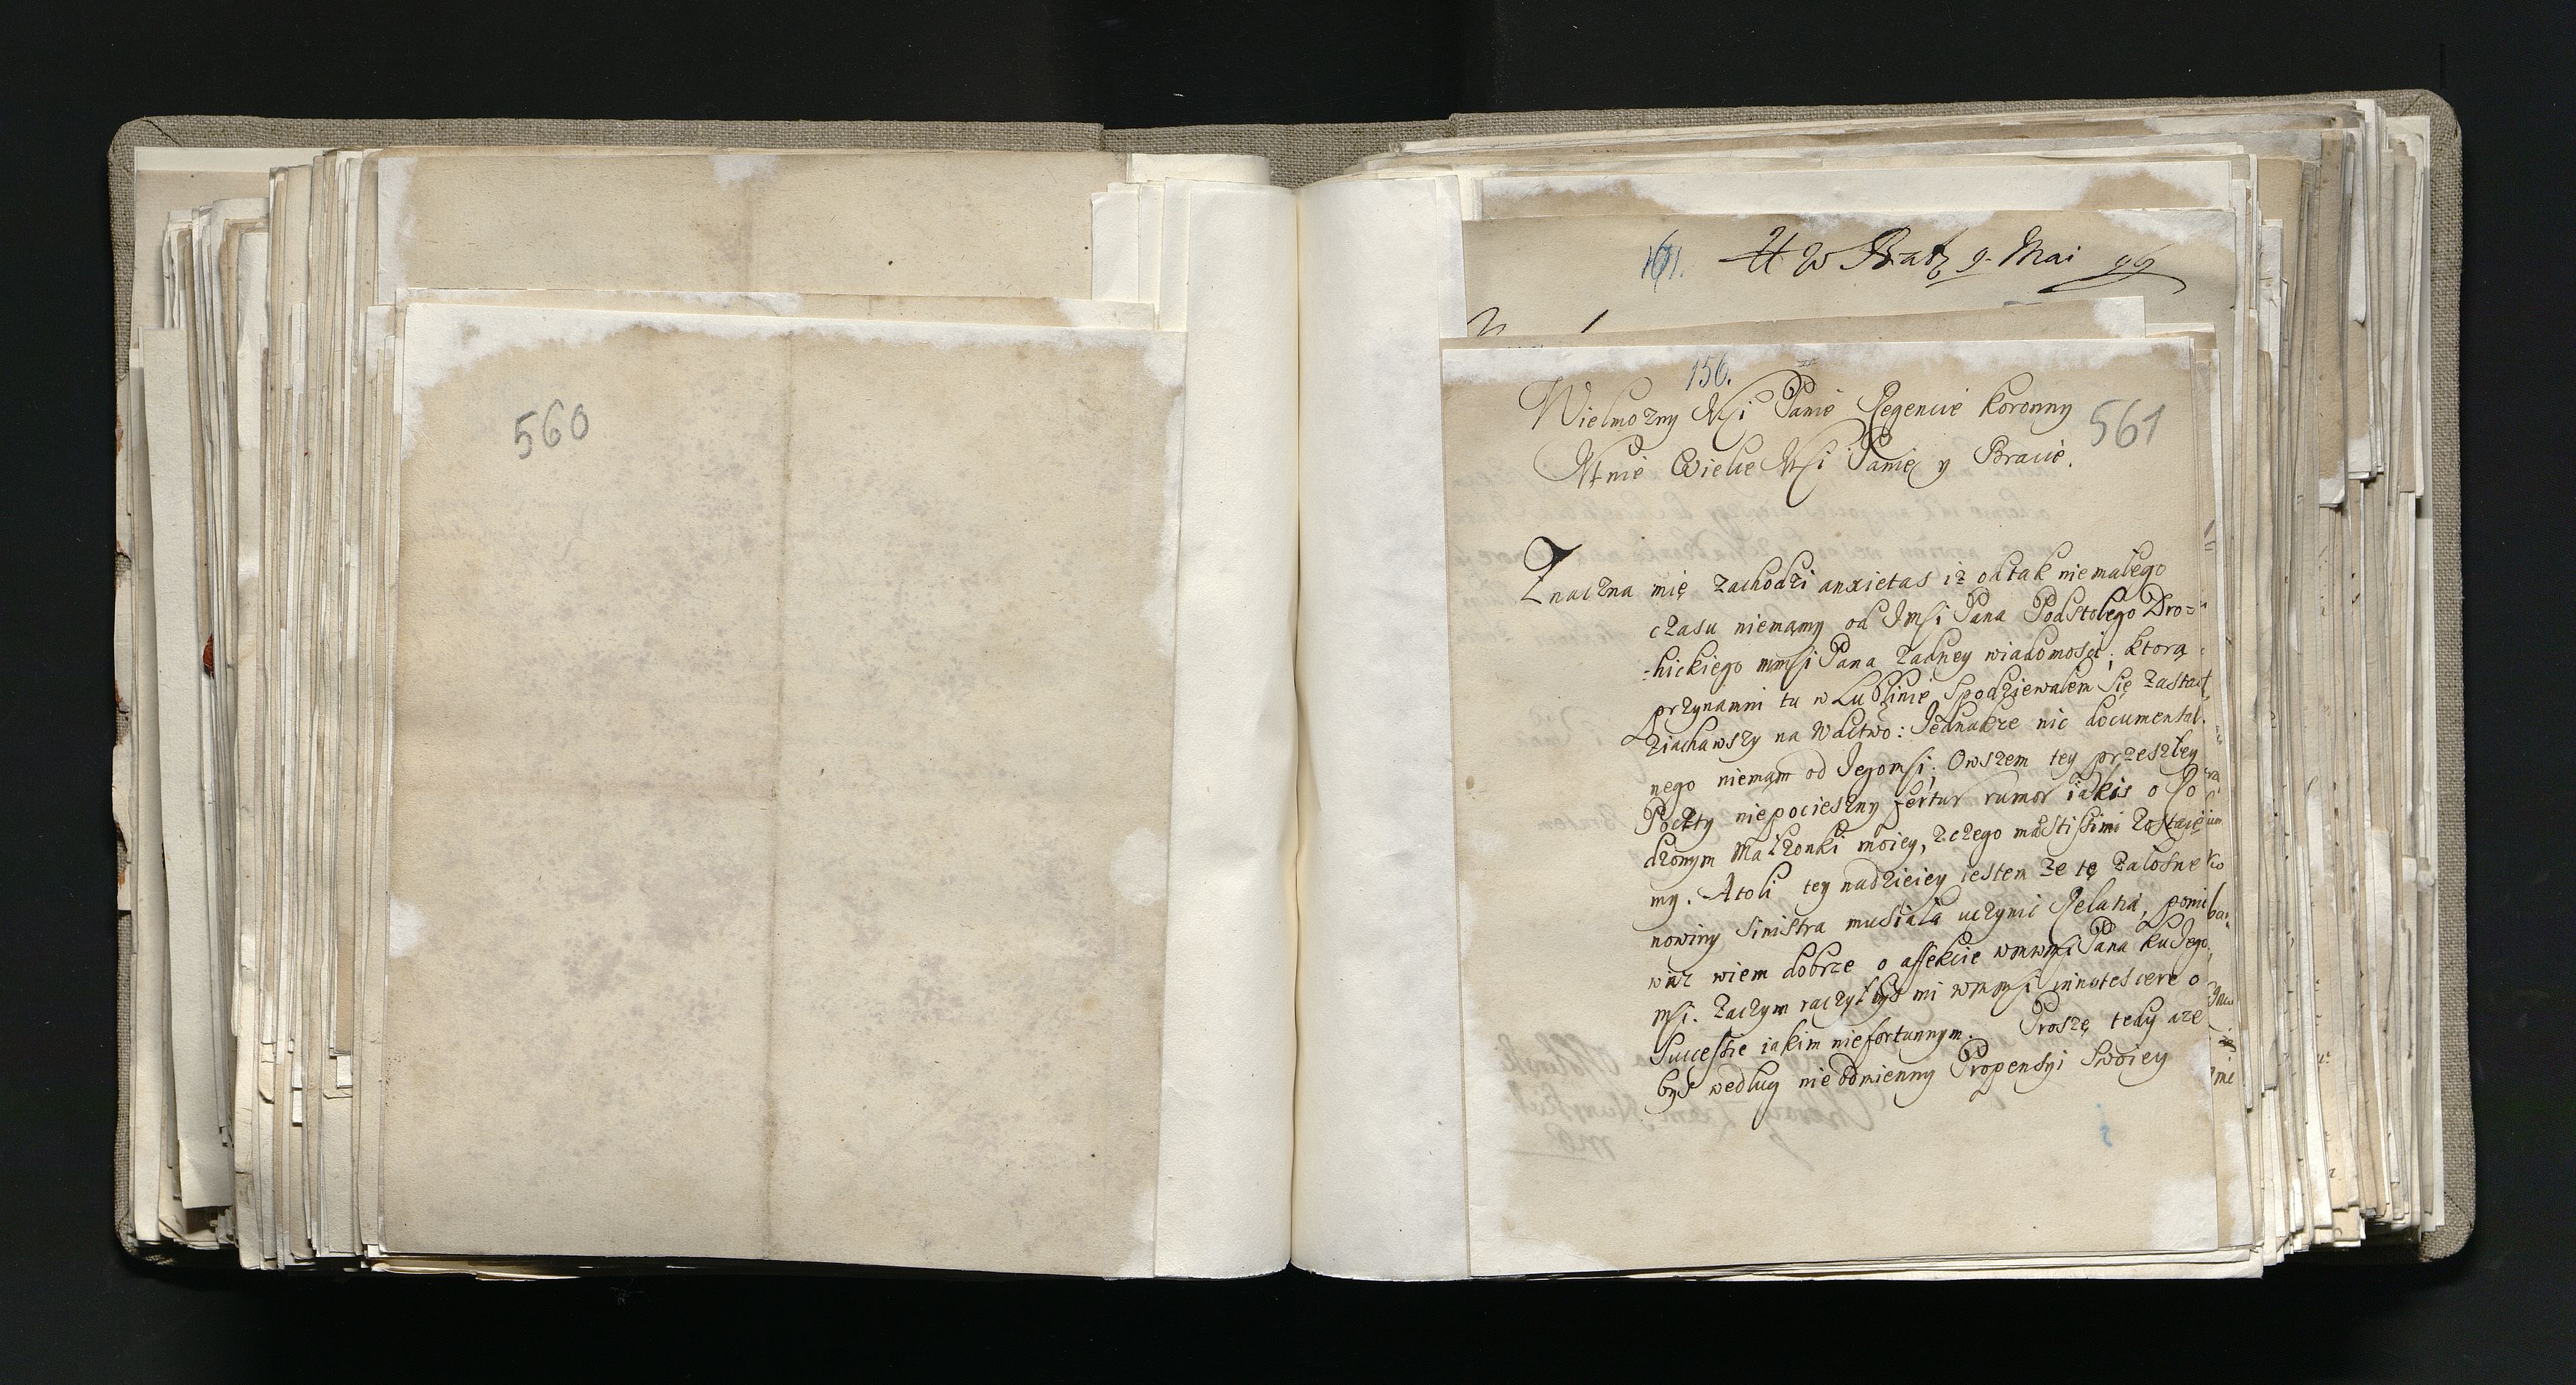 560
161. W Brat, 9. Mai 99
156.
Wielmożny Msi Panie Regencie koronny
561
Mnie Wielce Msi Panie y Bracie.
Znaczna mię zachodzi anxietas iż odtak niemałego
czasu niemamy od Jmsi Pana Podstolego Dro-
-hickiego mmsi Pana żadney wiadomosci; ktorą
przynamni tu w Lublinie spodziewałem się zastać
ziachawszy na Wactwo: Jednakże nic documental.
nego niemąm od Jegomsi; Owszem tey przeszłey
Poczty niepocieszny fertur rumor iakis o Ro
dzonym Małżonki moiey, zczego mæstissimi zostaię
my. Atoli tey nadzieiey iestem że tę żałosne
nowiny sinistra musiała uczynic Relatia, poni
waz wiem dobrze o affekcie wmwmsi Pana ku Jego
msi. Zaczym raczyłbys mi wmmsi innotescere o
Successie iakim niefortunnym. Proszę tedy aże
bys według nieodmienny Propensyi Swoiey